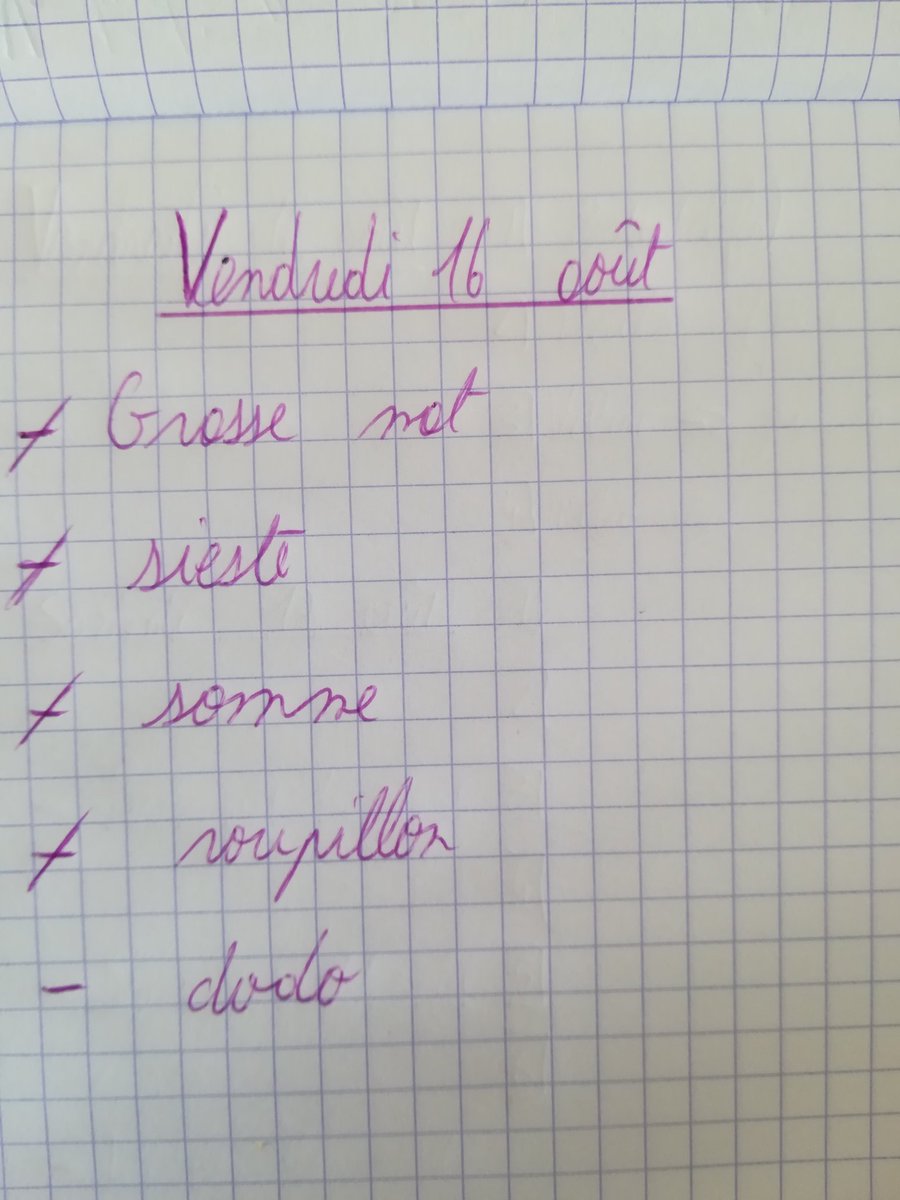 Vendredi 16 août
+ Grosse mat
+ sieste
+ somme
+ roupillon
- dodo